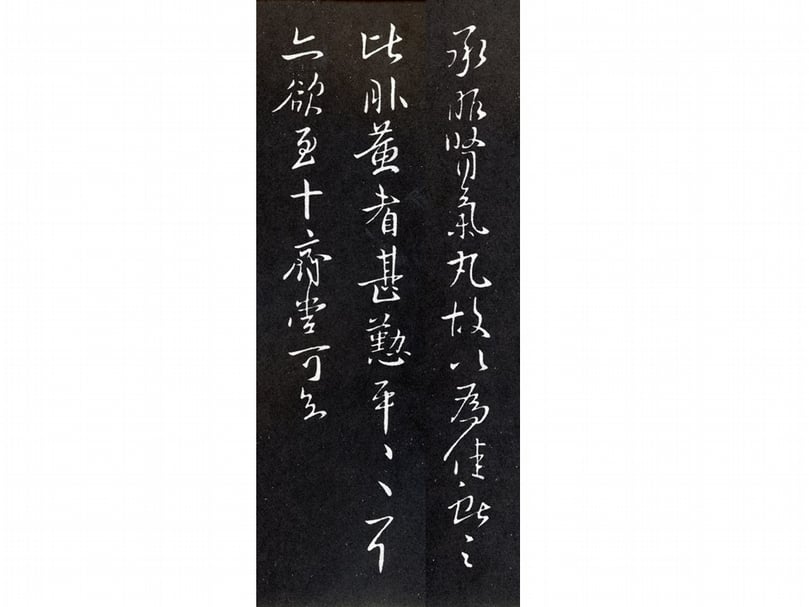 承服腎氣丸故以為佳獻之
比服黃耆甚懃平平耳
亦欲至十齊當可知